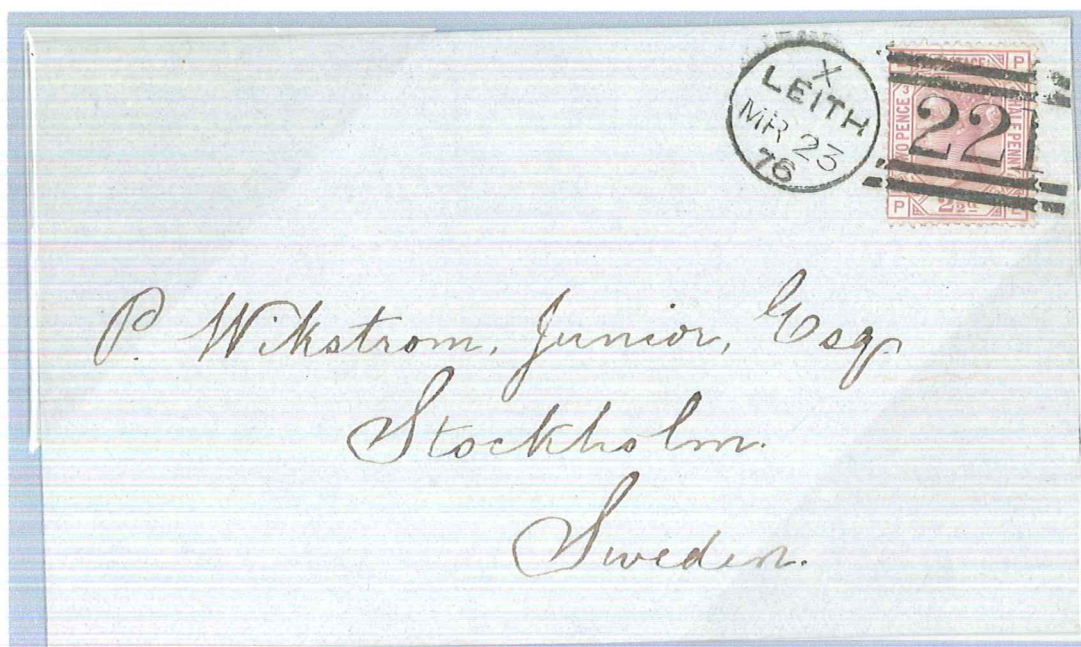 X
LEITH
MR 23
76
221
POSTAGE
P P
TWO PENCE 3 HALFPENNY
P 2½d L
P. Wikstrom, Junior, Esqr
Stockholm.
Sweden.